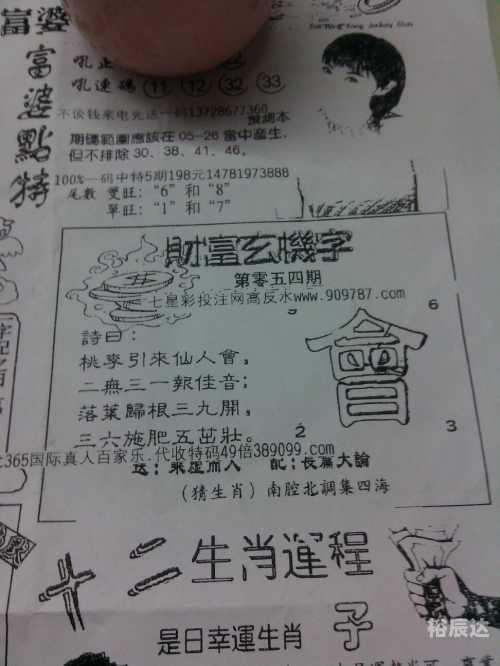 富婆
Hong Kong Jockey Club
富婆點特
吼連碼 11 12 32 33
不谈钱来电先送一码13728677360
預測本
期碼範圍應該在05-26當中産生,
但不排除30、38、41、46。
100%一码中特5期198元14781973888
尾數 雙旺:“6”和“8”
單旺:“1”和“7”
財富玄機字
第零五四期
七星彩投注网高反水www.909787.com
詩曰:
桃李引來仙人會,
二無三一報佳音;
落葉歸根三九開,
三六施肥五茁壯。
會
6
3
2
365国际真人百家乐.代收特码49倍389099.com
送:乘虛而入 配:長篇大論
(猜生肖)南腔北調集四海
十二生肖運程
是日幸運生肖 子
裕辰达